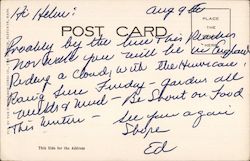 Hi Helen: Aug 9th
POST CARD
PLACE
Probably by the time this reaches
you will be in England
a Cloudy with the Hurricane!
Rains Since Sunday - gardens all
Weeds & Mud - Be Short on Food
This Winter - See you again
Ed
This Side for the Address